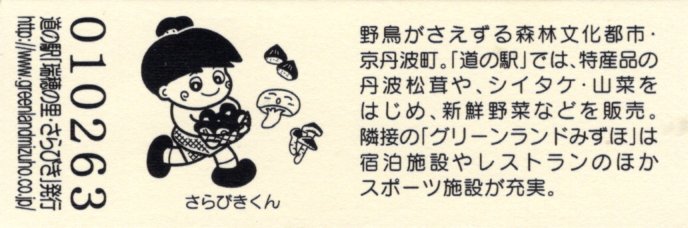 野鳥がさえずる森林文化都市・
京丹波町。「道の駅」では、特産品の
丹波松茸や、シイタケ・山菜を
はじめ、新鮮野菜などを販売。
隣接の「グリーンランドみずほ」は
宿泊施設やレストランのほか
スポーツ施設が充実。
さらびきくん
010263
道の駅「瑞穂の里・さらびき」発行
http://www.greenlandmizuho.co.jp/